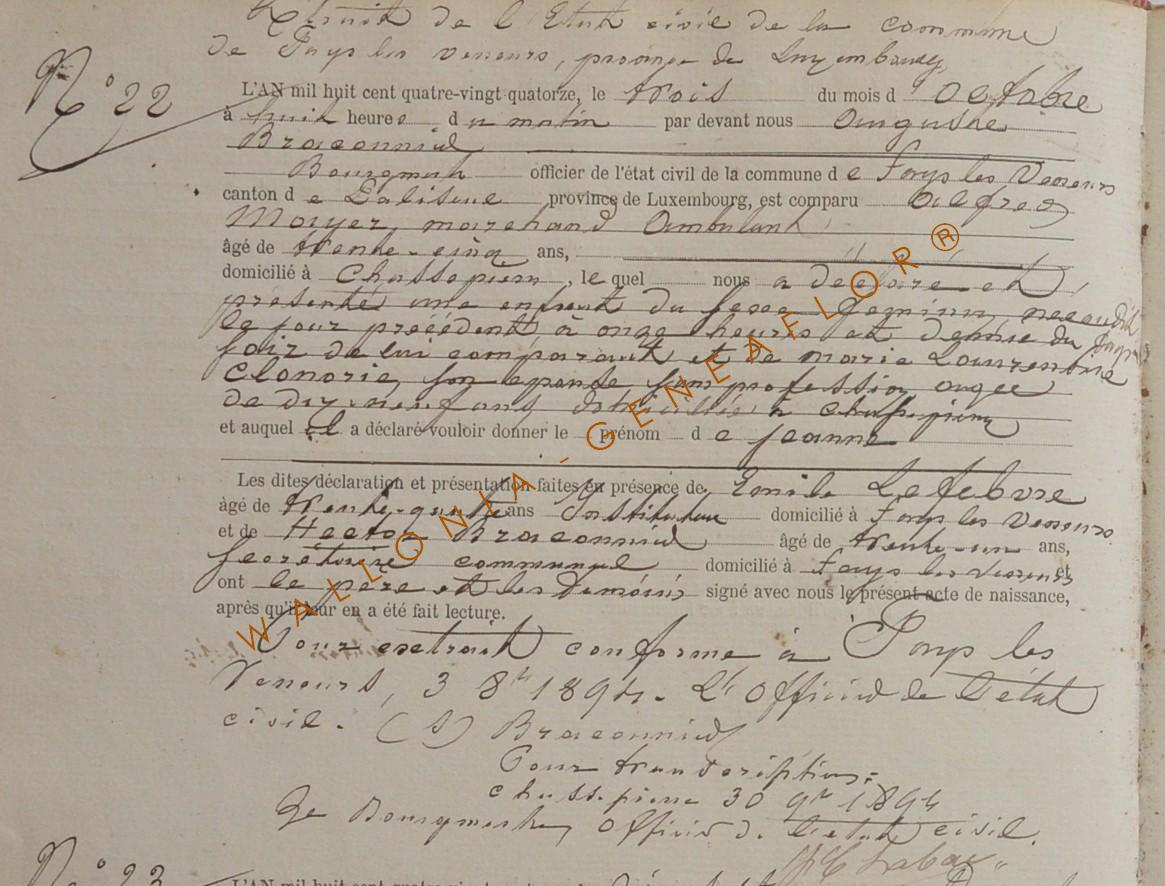 Extrait de l'Etat civil de la commune
de Fays les veneurs, province de Luxembourg.
N° 22
L'AN mil huit cent quatre-vingt quatorze, le trois du mois d'octobre
à huit heures du matin par devant nous Auguste
Braconnier
Bourgmestre officier de l'état civil de la commune de Fays les Veneurs
canton de Paliseul province de Luxembourg, est comparu Alfred
Mayer, marchand ambulant
âgé de trente-cinq ans,
domicilié à Chassepierre, lequel nous a déclaré et
présenté une enfant du sexe féminin, née audit
le jour précédent à onze heures et demie du
soir de lui comparant et de Marie Laurentine
son épouse sans profession agée
de dix-neuf ans domiciliée à Chassepierre
et auquel il a déclaré vouloir donner le prénom de Jeanne
Les dites déclaration et présentation faites en présence de Emile Lefebvre
âgé de trente-quatre ans Instituteur domicilié à Fays les Veneurs
et de Hector Braconnier âgé de trente-un ans,
secrétaire communal domicilié à Fays les Veneurs et
ont le père et les témoins signé avec nous le présent acte de naissance,
après qu'il leur en a été fait lecture.
Pour extrait conforme à Fays les
Veneurs, 3 8bre 1894. L'Officier de l'état
civil. (s) Braconnier
Pour transcription:
Chassepierre 30 9bre 1894
Le Bourgmestre, Officier de l'état civil.
N° 23
L'AN mil huit cent quatre-vingt
WALLONIA-GENEAFLOR®